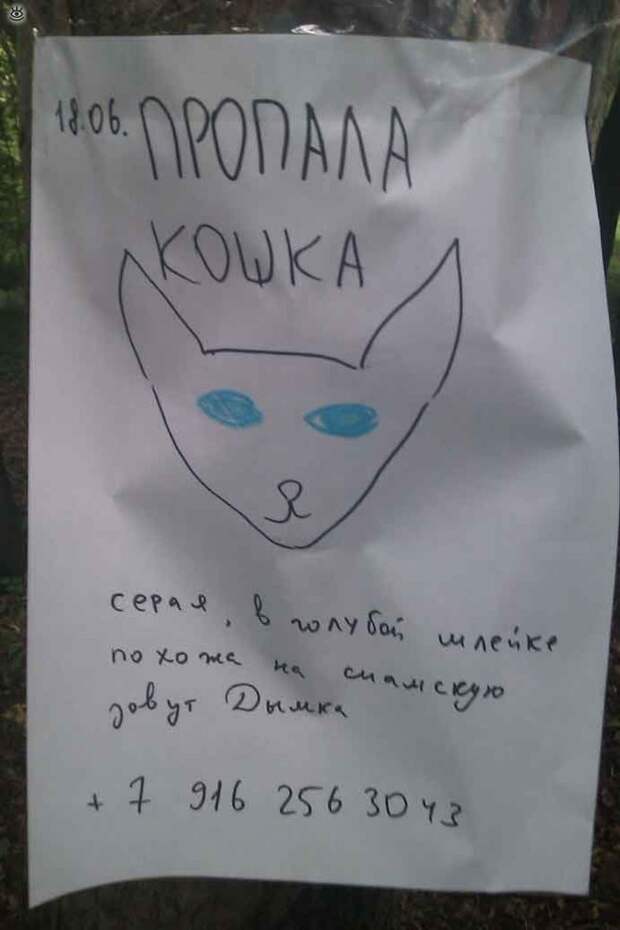 18.06. ПРОПАЛА
КОШКА
серая, в голубой шлейке
похожа на сиамскую
зовут Дымка
+ 7 916 256 30 43